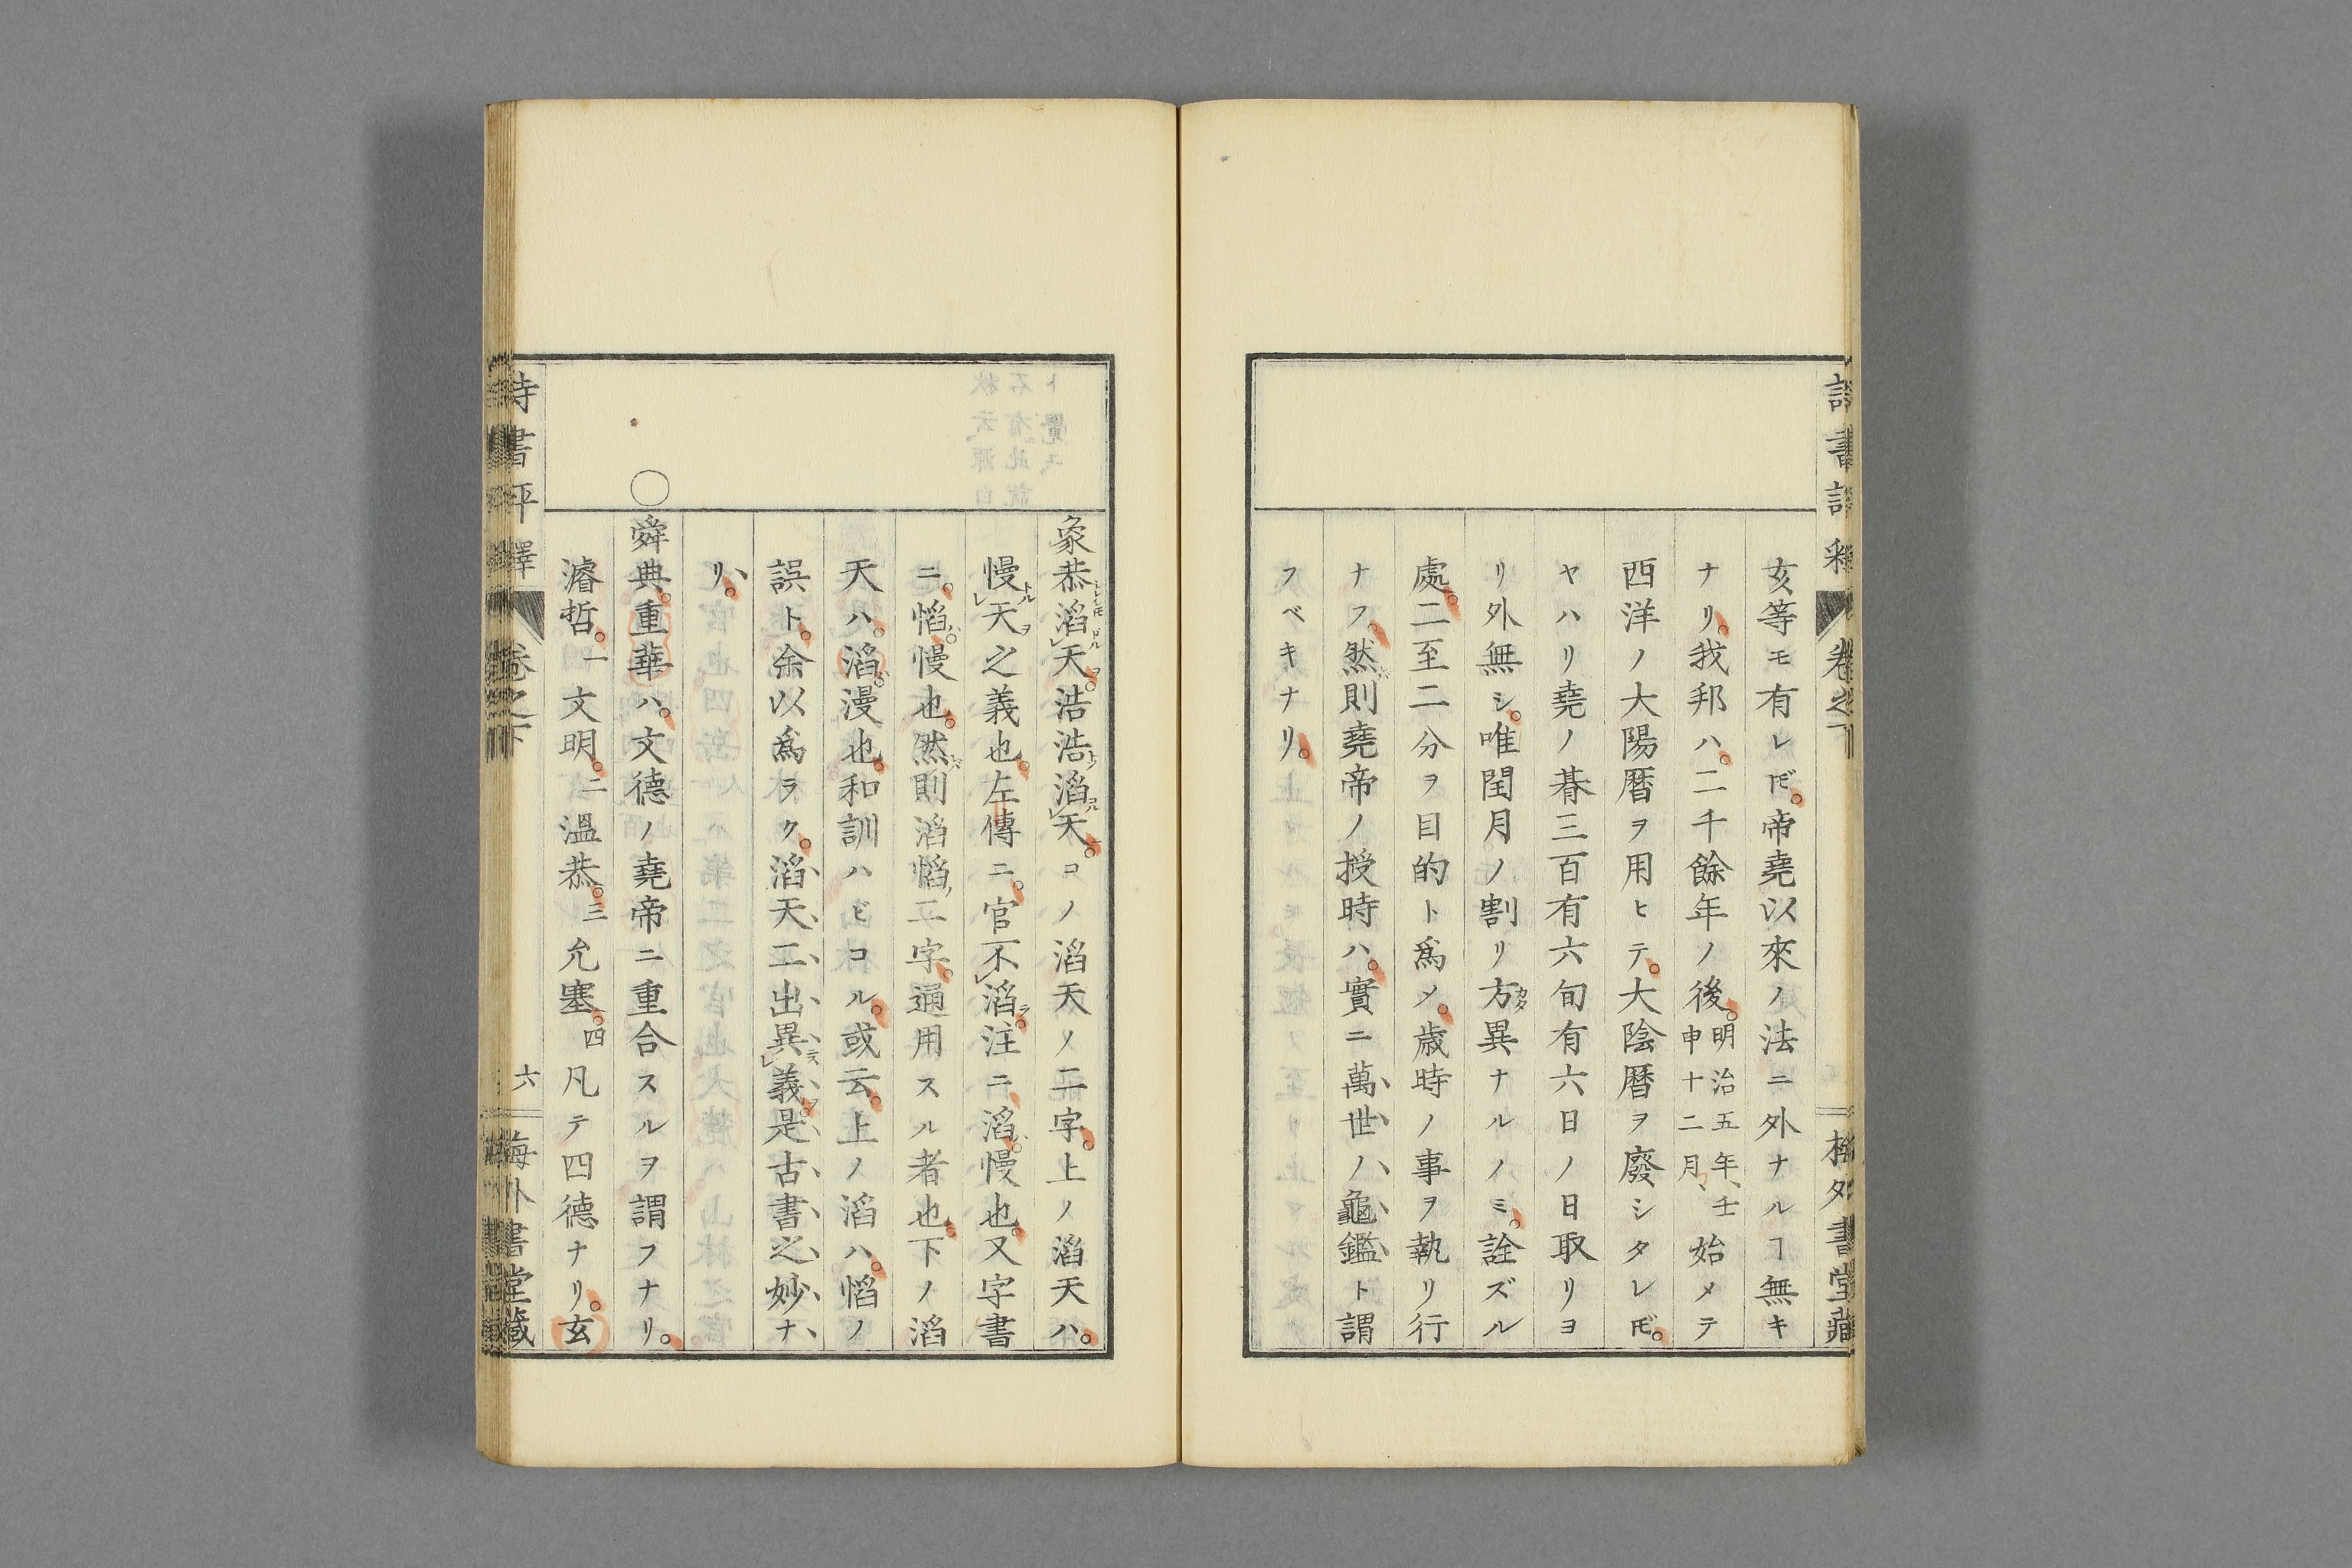 亥等モ有レ𪜈。帝堯以來ノ法ニ外ナルヿ無キ
ナリ。我邦ハ。二千餘年ノ後。明治五年、壬申十二月、始メテ
西洋ノ大陽暦ヲ用ヒテ。大陰暦ヲ廢シタレ𪜈。
ヤハリ堯ノ朞三百有六旬有六日ノ日取リヨ
リ外無シ。唯閏月ノ割リ方異ナルノミ。詮ズル
處。二至二分ヲ目的ト爲メ。歳時ノ事ヲ執リ行
ナフ。然則堯帝ノ授時ハ。實ニ萬世ノ龜鑑ト謂
フベキナリ。
象恭滔天。浩浩滔天。コノ滔天ノ二字。上ノ滔天ハ。
慢天之義也。左傳ニ。官不滔。注ニ滔。慢也。又字書
ニ。慆。慢也。然則滔慆二字。通用スル者也。下ノ滔
天ハ。滔。漫也。和訓ハビコル。或云。上ノ滔ハ。慆ノ
誤ト。余以爲ラク。滔天二出異義。是古書之妙ナ
リ。
○舜典。重華ハ。文德ノ堯帝ニ重合スルヲ謂フナリ。
濬哲。一文明。二溫恭。三允塞。四凡テ四德ナリ。玄
卷之下
六
書堂藏